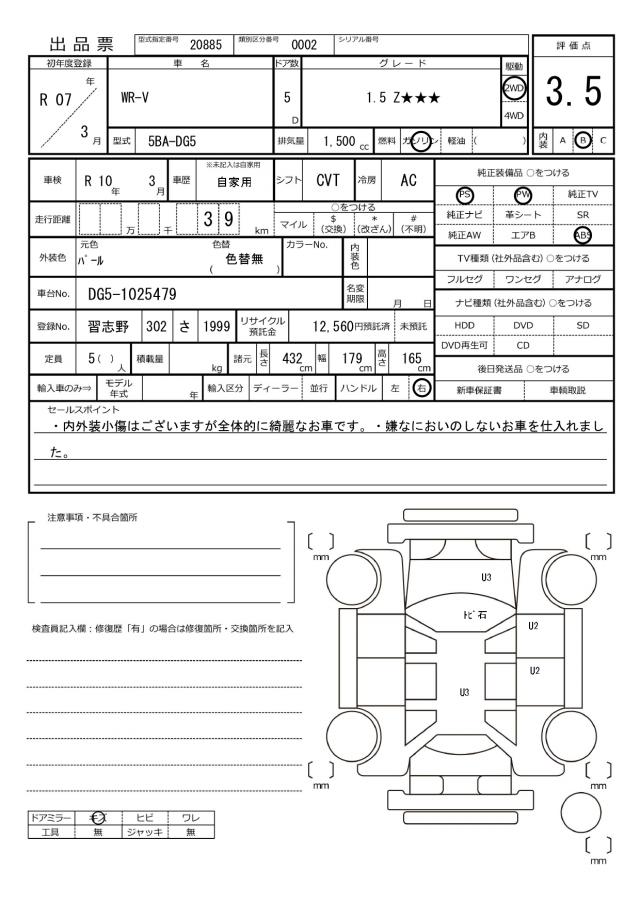 出品票 型式指定番号 20885 類別区分番号 0002 シリアル番号
評価点
3.5
内装 A B C
初年度登録 車名 ドア数 グレード 駆動
R 07 年 3 月 WR-V 5 D 1.5 Z★★★ 2WD 4WD
型式 5BA-DG5 排気量 1,500 cc 燃料 ガソリン 軽油 ( )
車検 R 10 年 3 月 車歴 ※未記入は自家用 自家用 シフト CVT 冷房 AC
走行距離 万 千 3 9 km ○をつける
マイル $ (交換) * (改ざん) # (不明)
外装色 元色 パール 色替 ( 色替無 ) カラーNo. 内装色
車台No. DG5-1025479 名変期限 月 日
登録No. 習志野 302 さ 1999 リサイクル預託金 12,560円預託済 未預託
定員 5 ( ) 人 積載量 kg 諸元 長さ 432 cm 幅 179 cm 高さ 165 cm
輸入車のみ⇒ モデル年式 年 輸入区分 ディーラー 並行 ハンドル 左 右
純正装備品 ○をつける
PS PW 純正TV
純正ナビ 革シート SR
純正AW エアB ABS
TV種類 (社外品含む) ○をつける
フルセグ ワンセグ アナログ
ナビ種類 (社外品含む) ○をつける
HDD DVD SD
DVD再生可 CD
後日発送品 ○をつける
新車保証書 車輌取説
セールスポイント
・内外装小傷はございますが全体的に綺麗なお車です。・嫌なにおいのしないお車を仕入れまし
た。
注意事項・不具合箇所
検査員記入欄：修復歴「有」の場合は修復箇所・交換箇所を記入
ドアミラー キズ ヒビ ワレ
工具 無 ジャッキ 無
〔 〕 mm
〔 〕 mm
U3
トビ石
U2
U2
U3
〔 〕 mm
〔 〕 mm
〔 〕 mm